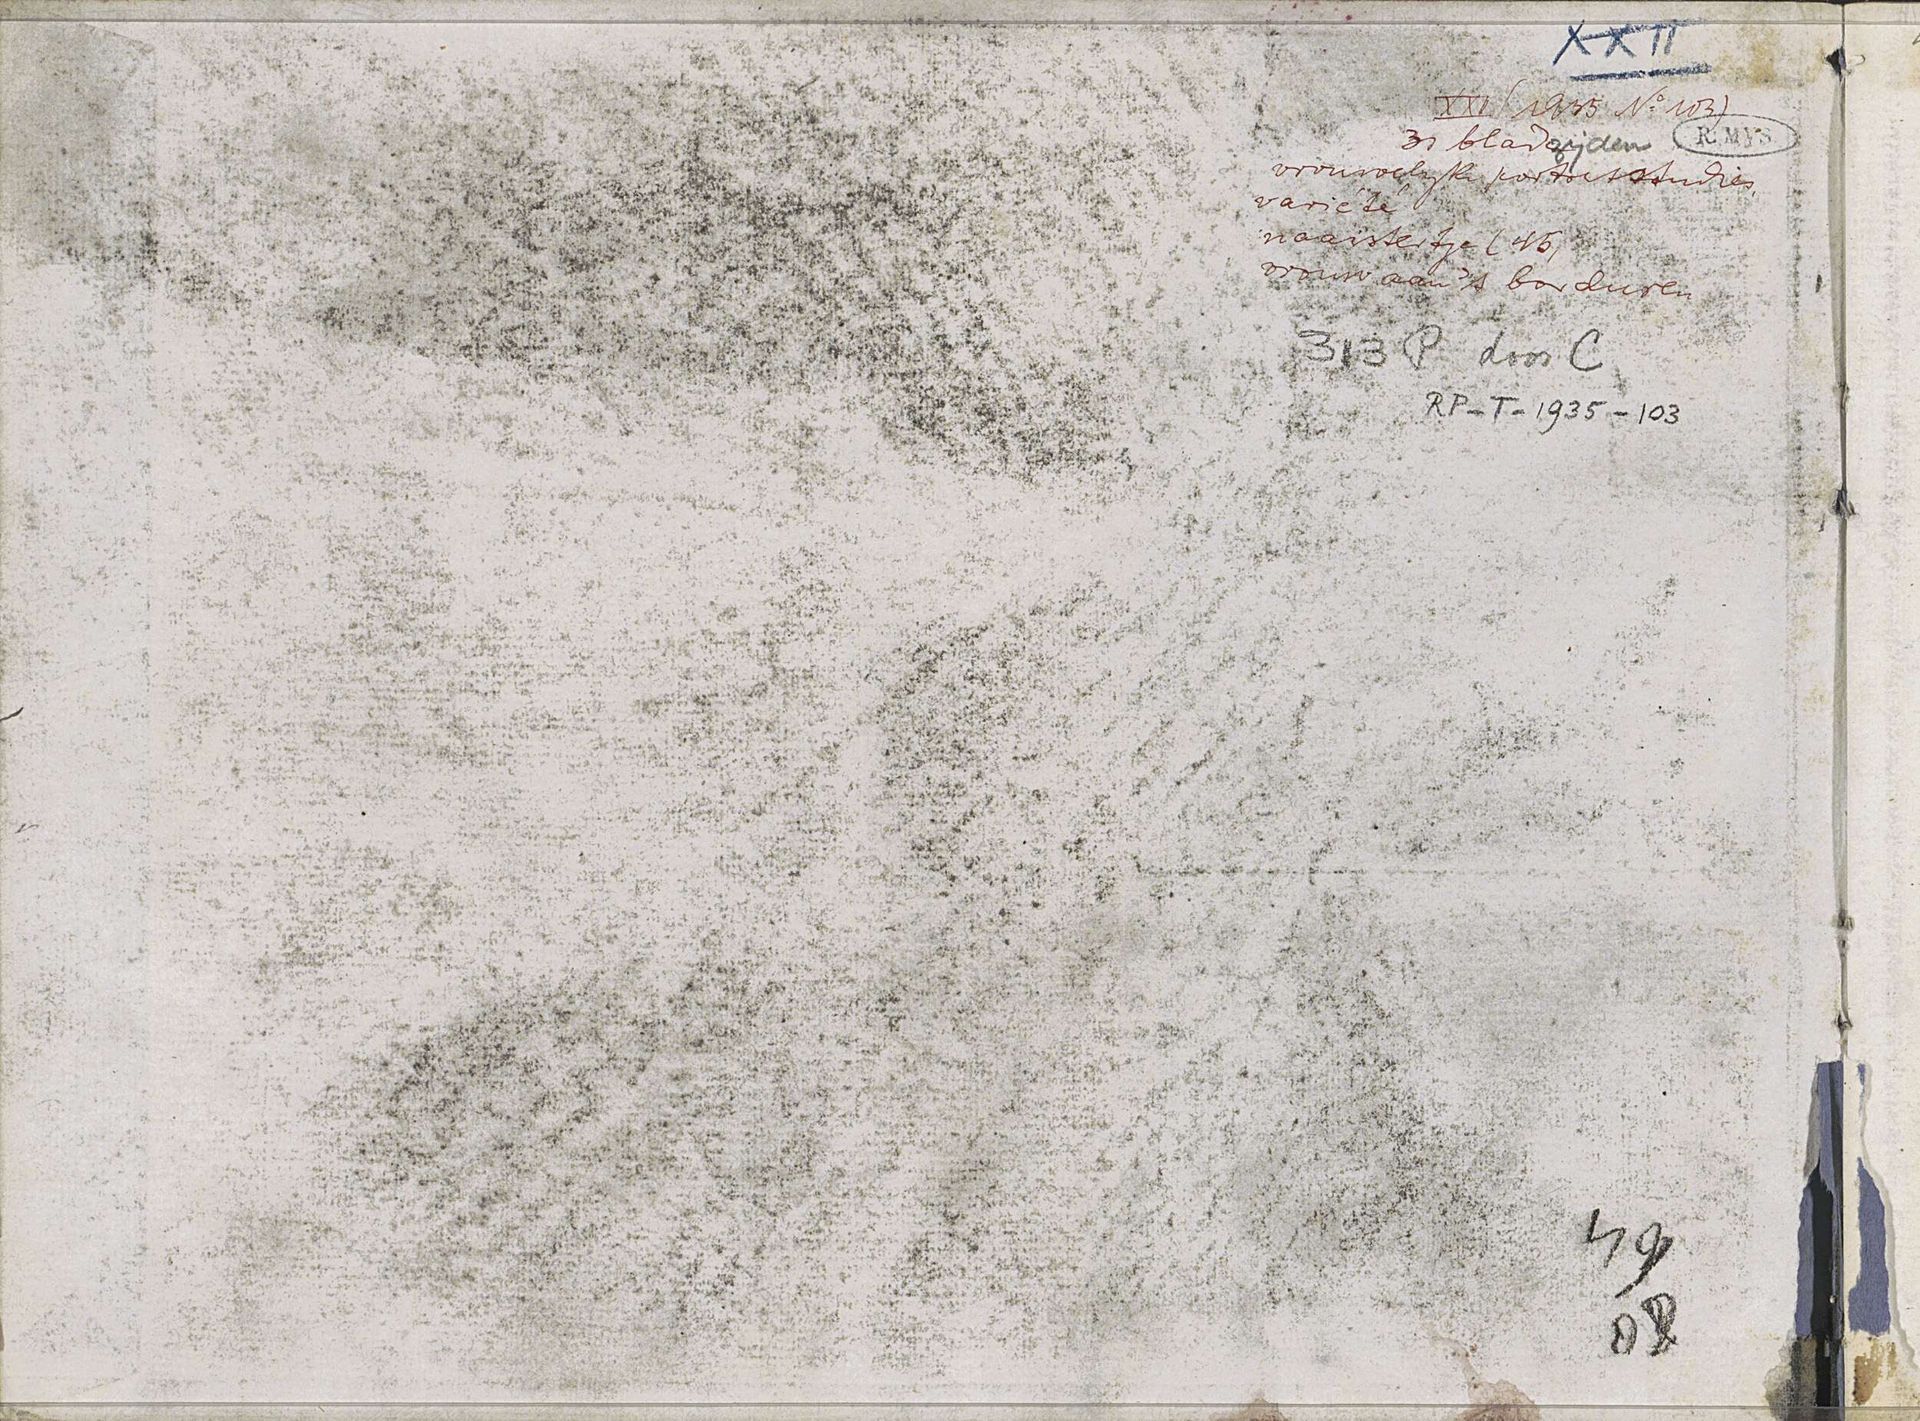 XXII
XXII (1935 No 103)
31 bladzijden
R. MVS.
vrouwelyke portretstudies,
variété
naaistertje (15)
vrouw aan 't borduren
313 P doos C
RP-T-1935-103